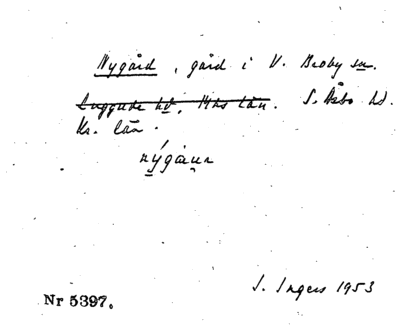 Nygård, gård i V. Broby sn.
Luggude hd, Mhs län. S. Åsbo hd.
Kr. län.
nýgå̀ɹn
I. Ingers 1953
Nr 5397.